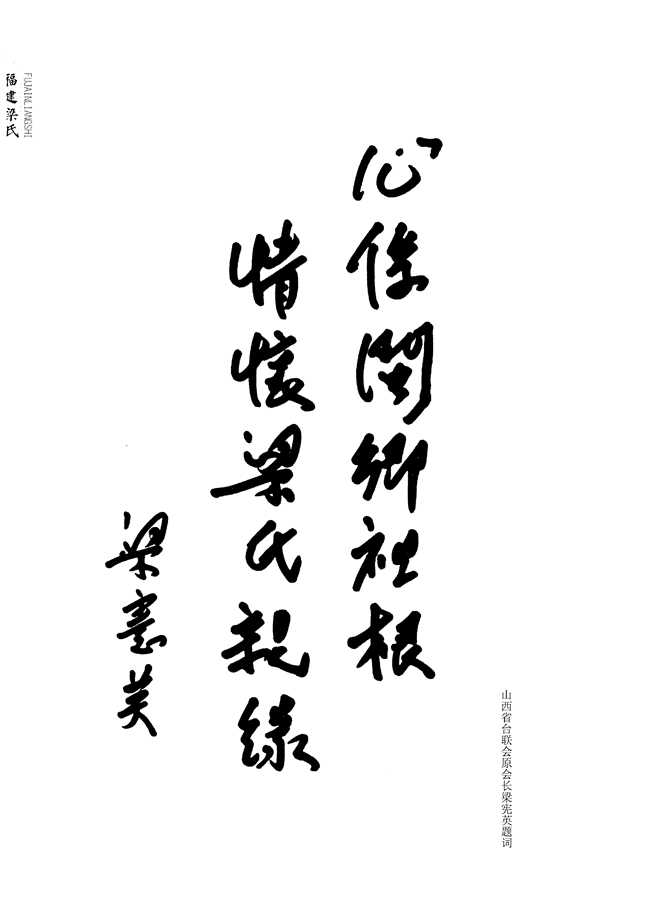 福建梁氏
FUJAINLIANGSHI
心係閩鄉祖根
情懷梁氏親緣
梁憲英
山西省台联会原会长梁宪英题词